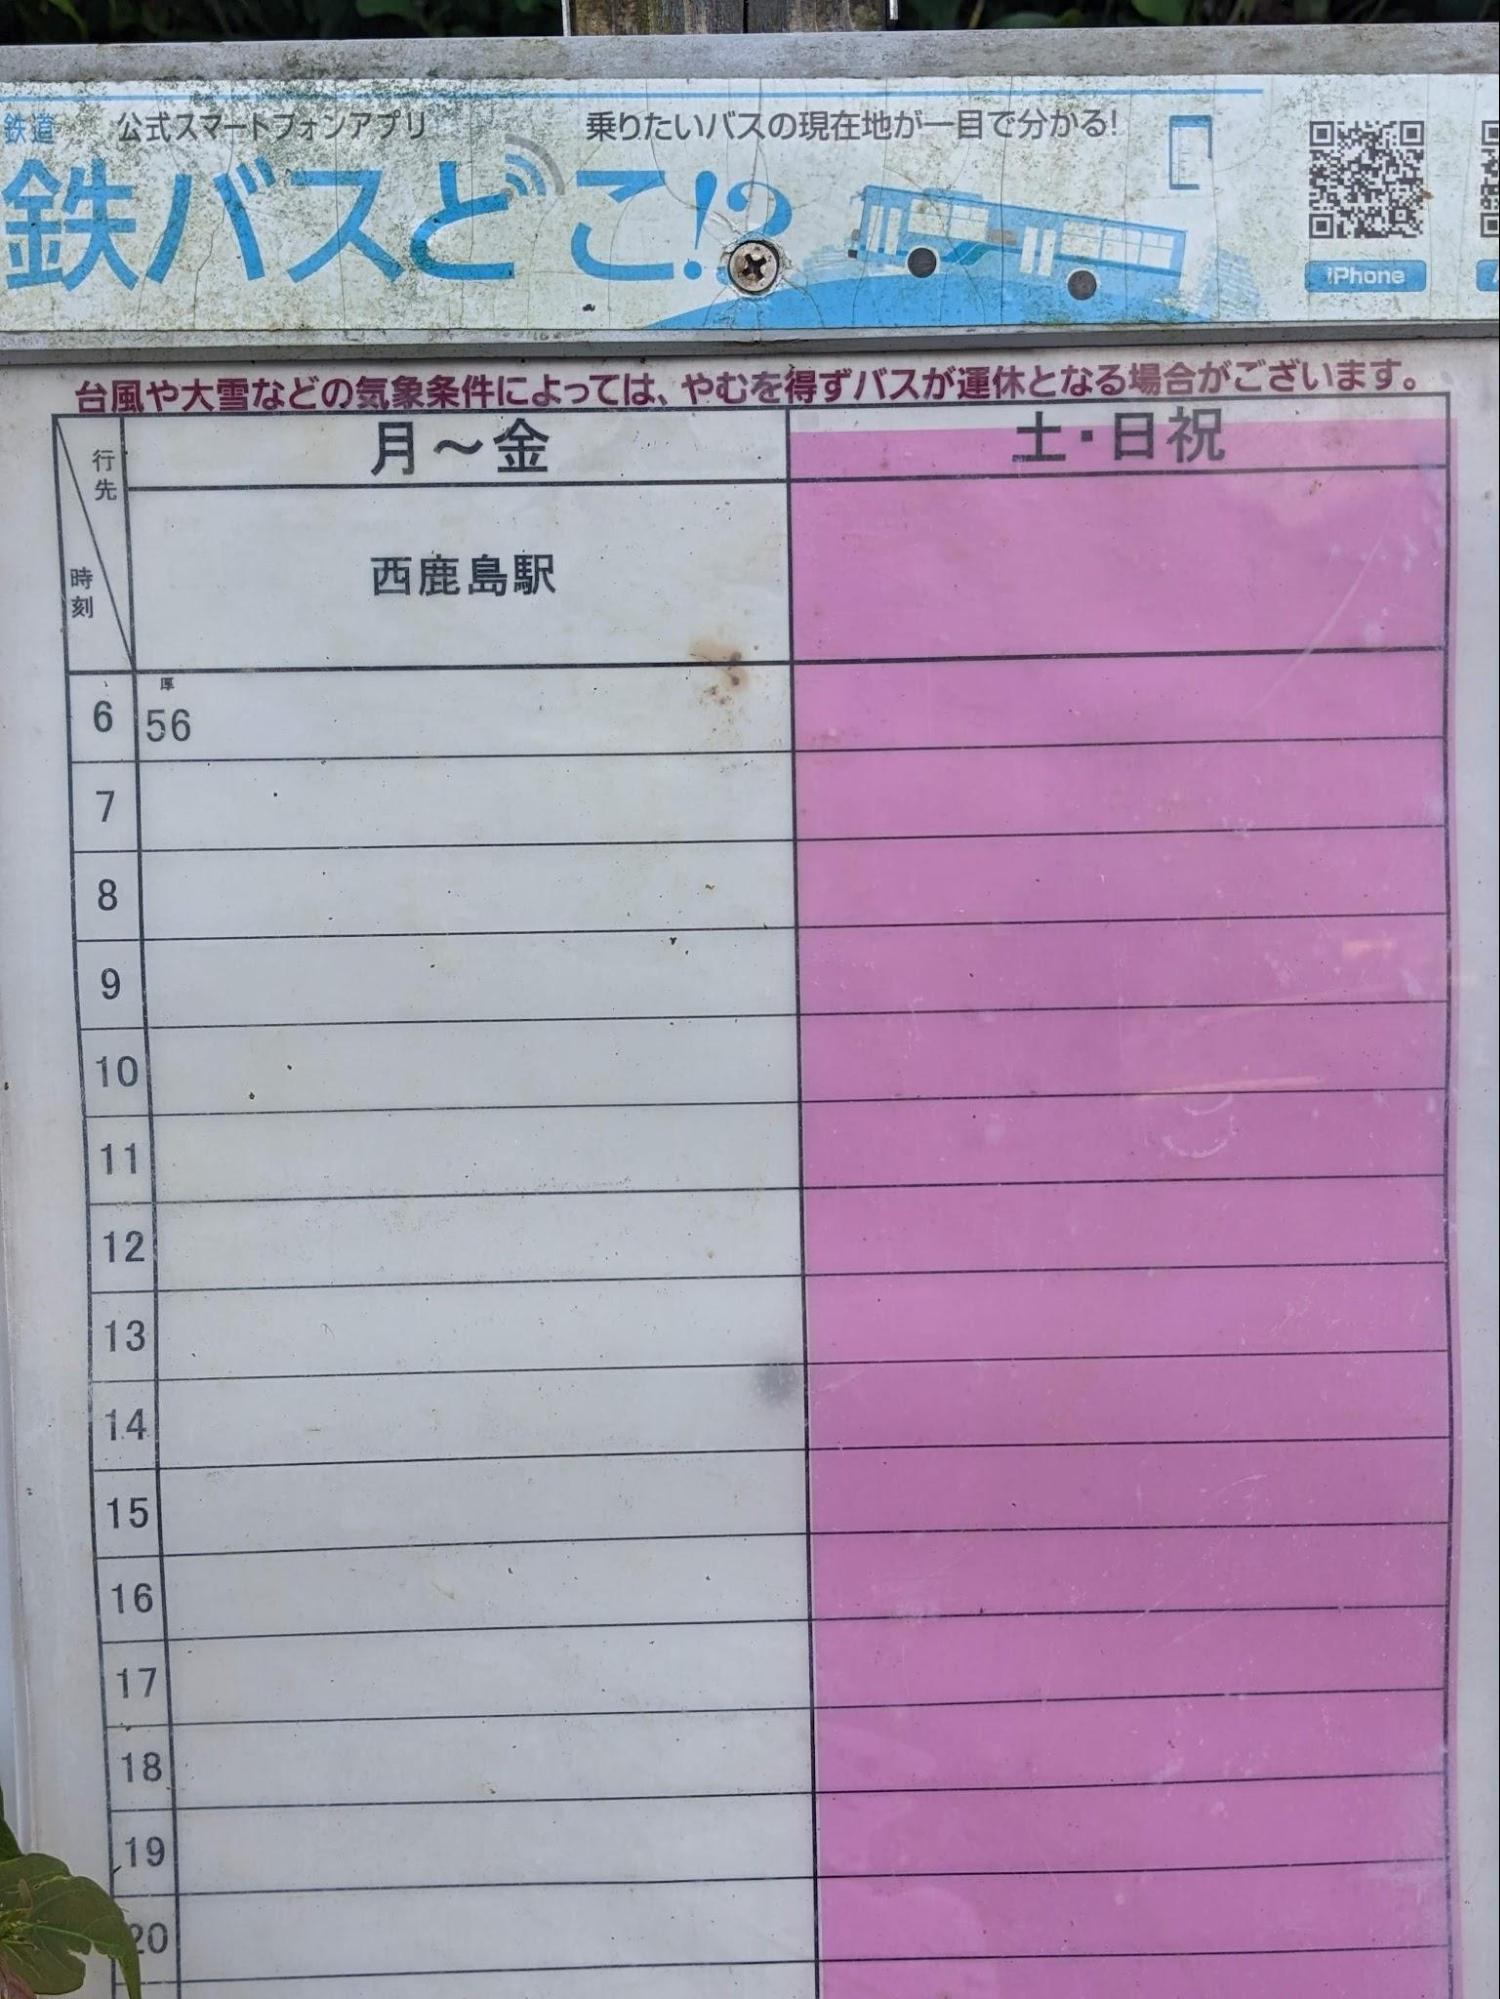 鉄道 公式スマートフォンアプリ 乗りたいバスの現在地が一目で分かる!
鉄バスどこ!?
iPhone
台風や大雪などの気象条件によっては、やむを得ずバスが運休となる場合がございます。
行先 月～金 土・日祝
時刻 西鹿島駅
厚
6 56
7
8
9
10
11
12
13
14
15
16
17
18
19
20